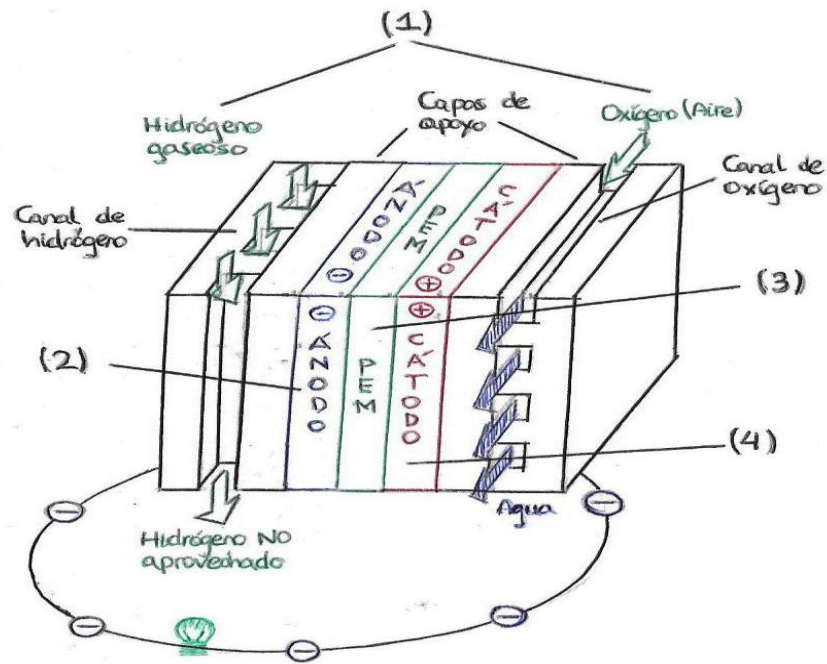 (1)
Hidrógeno
gaseoso
Capas de
apoyo
Oxígeno (Aire)
Canal de
hidrógeno
Canal de
oxígeno
ÁNODO
⊖
PEM
CÁTODO
⊕
(2)
⊖ ÁNODO
PEM
⊕ CÁTODO
(3)
(4)
Agua
Hidrógeno NO
aprovechado
⊖
⊖
⊖
⊖
⊖